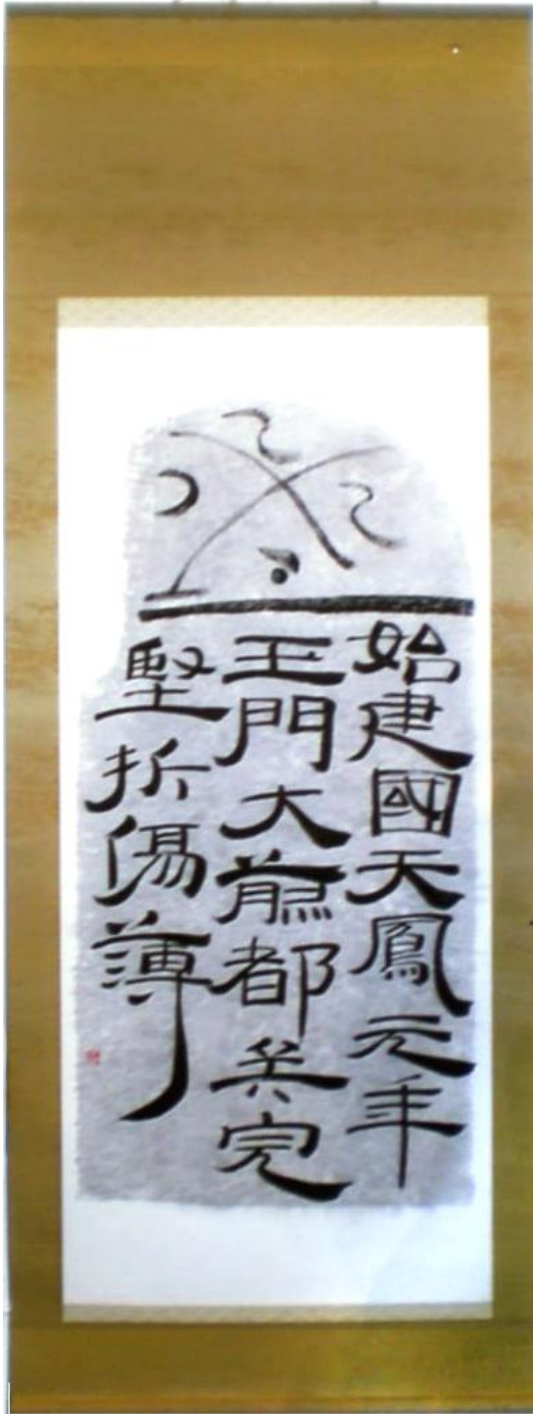 始建國天鳳元年
玉門大煎都兵完
堅折傷薄